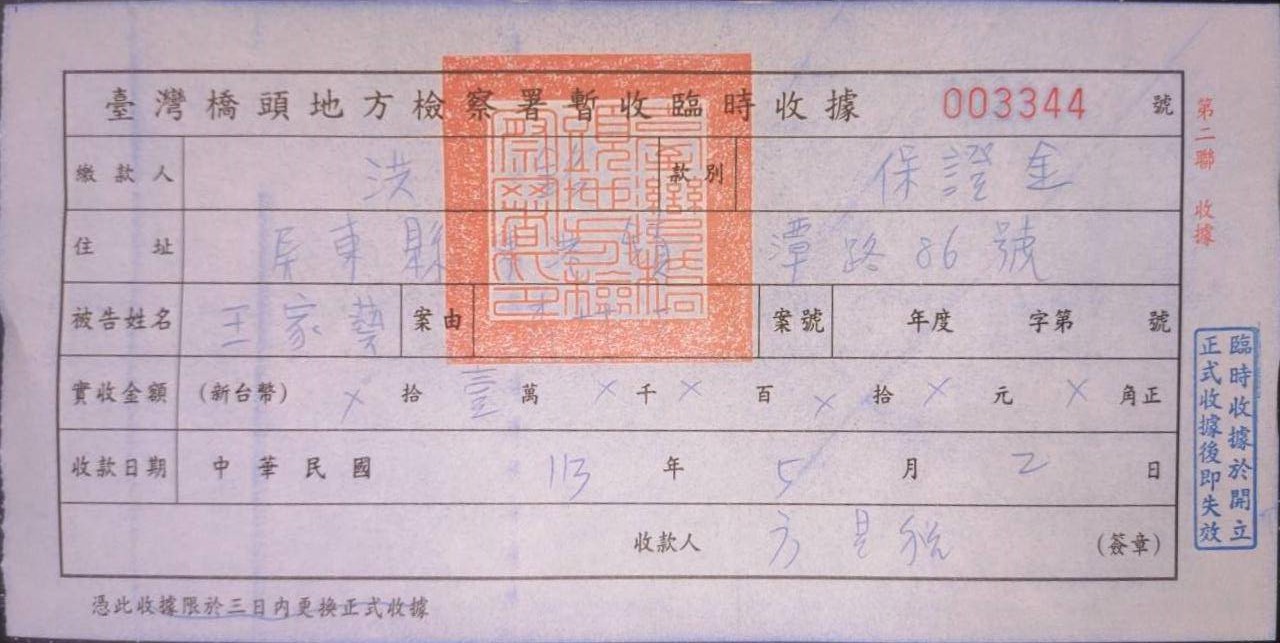 臺灣橋頭地方檢察署暫收臨時收據 003344 號
繳款人 洪 款別 保證金
住址 屏東縣 鎮 潭路86號
被告姓名 王家藝 案由 案號 年度 字第 號
實收金額 (新台幣) × 拾 壹 萬 × 千 × 百 × 拾 × 元 × 角正
收款日期 中華民國 113 年 5 月 2 日
收款人 方 (簽章)
憑此收據限於三日內更換正式收據
第二聯 收據
臨時收據於開立
正式收據後即失效